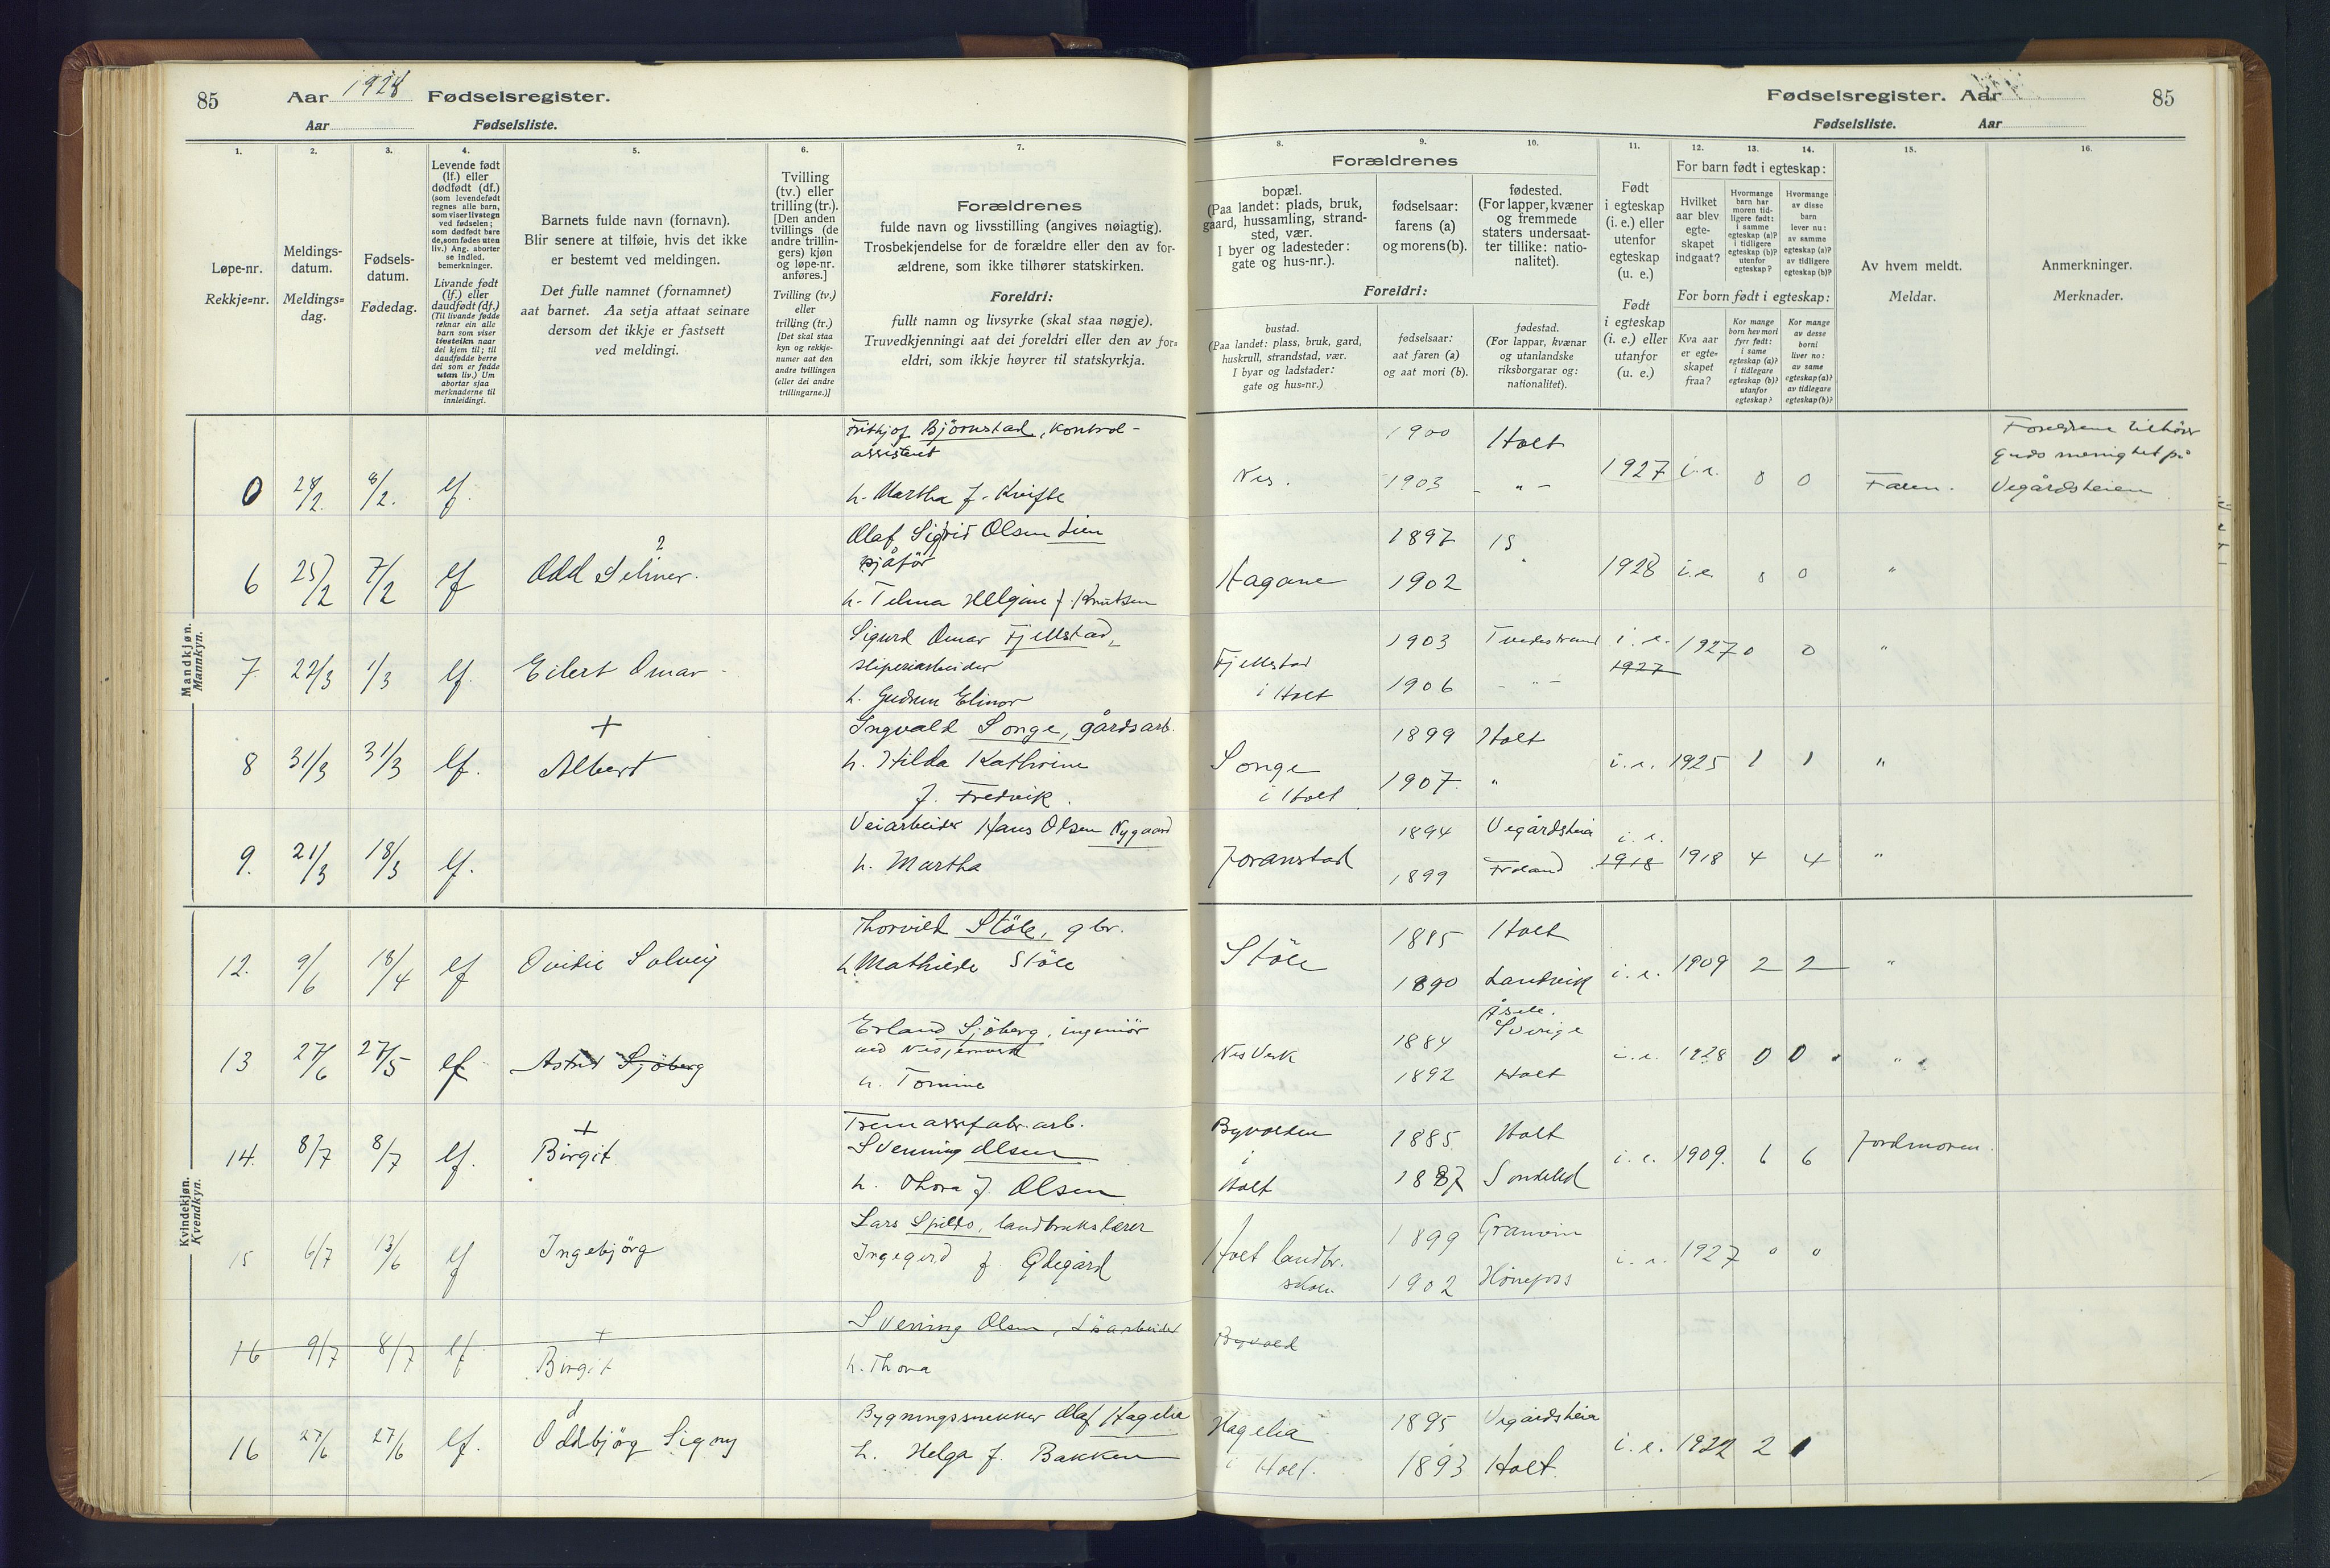 85
Aar 1928 Fødselsregister.
Aar Fødselsliste.
Fødselsregister. Aar
Fødselsliste. Aar
85
1.
Løpe-nr.
Rekkje=nr.
2.
Meldings-
datum.
Meldings=
dag.
3.
Fødsels-
datum.
Fødedag.
4.
Levende født
(lf.) eller
dødfødt (df.)
(som levendefødt
regnes alle barn,
som viser livstegn
ved fødselen;
som dødfødt bare
de, som fødes uten
liv.) Ang. aborter
se indled.
bemerkninger.
Livande født
(lf.) eller
daudfødt (df.)
(Til livande fødde
reknar ein alle
barn som viser
livsteikn naar
dei kjem til; til
daudfødde berre
dei som er fødde
utan liv.) Um
abortar sjaa
merknaderne til
innleidingi.
5.
Barnets fulde navn (fornavn).
Blir senere at tilføie, hvis det ikke
er bestemt ved meldingen.
Det fulle namnet (fornamnet)
aat barnet. Aa setja attaat seinare
dersom det ikkje er fastsett
ved meldingi.
6.
Tvilling
(tv.) eller
trilling (tr.).
[Den anden
tvillings (de
andre trillin-
gers) kjøn
og løpe-nr.
anføres.]
Tvilling (tv.)
eller
trilling (tr.)
[Det skal staa
kyn og rekkje-
numer aat den
andre tvillingen
(eller dei andre
trillingarne.)]
7.
Forældrenes
fulde navn og livsstilling (angives nøiagtig).
Trosbekjendelse for de forældre eller den av for-
ældrene, som ikke tilhører statskirken.
Foreldri:
fullt namn og livsyrke (skal staa nøgje).
Truvedkjenningi aat dei foreldri eller den av for=
eldri, som ikkje høyrer til statskyrkja.
8.
Forældrenes
bopæl.
(Paa landet: plads, bruk,
gaard, hussamling, strand-
sted, vær.
I byer og ladesteder:
gate og hus-nr.).
Foreldri:
bustad.
(Paa landet: plass, bruk, gard,
huskrull, strandstad, vær.
I byar og ladstader:
gate og hus=nr.)
9.
fødselsaar:
farens (a)
og morens (b).
fødselsaar:
aat faren (a)
og aat mori (b).
10.
fødested.
(For lapper, kvæner
og fremmede
staters undersaat-
ter tillike: natio-
nalitet).
fødestad.
(For lappar, kvænar
og utanlandske
riksborgarar og:
nationalitet).
11.
Født
i egteskap
(i. e.) eller
utenfor
egteskap
(u. e.)
Født
i egteskap
(i. e.) eller
utanfor
(u. e.)
12.
13.
14.
For barn født i egteskap:
Hvilket
aar blev
egte-
skapet
indgaat?
Hvormange
barn har
moren tid-
ligere født:
i samme
egteskap (a)?
i tidligere
egteskap (b)?
utenfor
egteskap?
Hvormange
av disse
barn
lever nu:
av samme
egteskap (a)?
av tidligere
egteskap (b)?
For born født i egteskap:
Kva aar
er egte=
skapet
fraa?
Kor mange
born hev mori
fyrr født:
i same
egteskap (a)?
i tidlegare
egteskap (b)?
utanfor
egteskap?
Kor mange
av desse
borni
liver no:
av same
egteskap (a)?
av tidlegare
egteskap (b)?
15.
Av hvem meldt.
Meldar.
16.
Anmerkninger.
Merknader.
Mandkjøn.
Mannkyn.
Frithjof Bjørnstad, kontrol-
assistent
0 28/2. 8/2. lf. h. Martha f. Kvifte
Nes. 1900 Holt 1927 i.e. 0 0 Faren.
1903 - " -
Foreldrene tilhører
Guds menighet på
Vegårdsheien
Olaf Sigfrid Olsen Lien
sjåfør
6 25/2 7/2 lf Odd Selmer.
h. Telma Helgine f. Knutsen
Hagane 1897 1902 1928 i.e. 0 0 "
Sigurd Omar Fjellstad,
sliperiarbeider
7. 22/3 1/3 lf. Eilert Omar
h. Gudrun Elinor
Fjellstad i Holt 1903 Tvedestrand i.e. 1927 1927 0 0 "
1906 - " -
+
Ingvald Songe, gårdsarb.
8 31/3 31/3 lf. Albert h. Hilda Kathrine
f. Fredvik.
Songe i Holt 1899 Holt i.e. 1925 1 1 "
1907. "
Veiarbeider Hans Olsen Nygaard
9. 21/3 18/3 lf. h. Martha
Joranstad 1894 Vegårdsheia i.e. 1918 1918 4 4 "
1899 Froland
Kvindekjøn.
Kvendkyn.
Thorvild Støle, gbr.
12. 9/6 18/4 lf Ovidie Solveig h. Mathilde Støle
Støle 1885 Holt i.e. 1909 2 2 "
1890 Landvik
Erland Sjöberg, ingeniör
ved Nes jernverk
13 27/6 27/5 lf Astrid Sjöberg h. Tomine
Nes Verk 1884 Åsele. Sverige i.e. 1928 0 0 "
1892 Holt
+
Tremassefabr.arb.
14. 8/7 8/7 lf. Birgit Svenning Olsen
h. Thora f. Olsen
i Holt 1885 Holt i.e. 1909. 6 6 Jordmoren.
1887 Søndeled
Lars Spildo, landbrukslærer
15 6/7 13/6 lf Ingebjörg Ingegerd f. Ødegård
Holt landbr. skole 1899 Granvin i.e. 1927 0 0
1902 Hönefoss
+
16 9/7 8/7 lf Birgit Svening Olsen, Løsarbeider
h. Thora
Byvold
Bygningssnekker Olaf Hagelia
16 27/6 27/6 lf. Oddbjörg Signy h. Helga f. Bakken
Hagelia i Holt. 1895 Vegårdsheia i.e. 1922 2 1
1893 Holt.